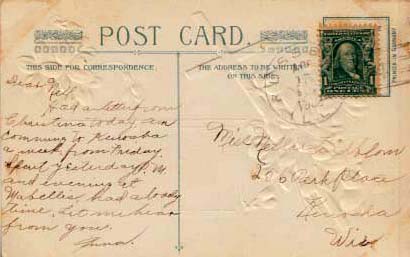 POST CARD.
THIS SIDE FOR CORRESPONDENCE.
THE ADDRESS TO BE WRITTEN
ON THIS SIDE
PRINTED IN GERMANY
Dear
Had a letter from
Christina today, am
comming to Kenosha
a week from Friday
Spent yesterday P.M.
and evening at
Mabelles, had a lovely
time. Let me hear
from you.
Anna.
Miss Nellie
206 Park Place
Kenosha
Wis